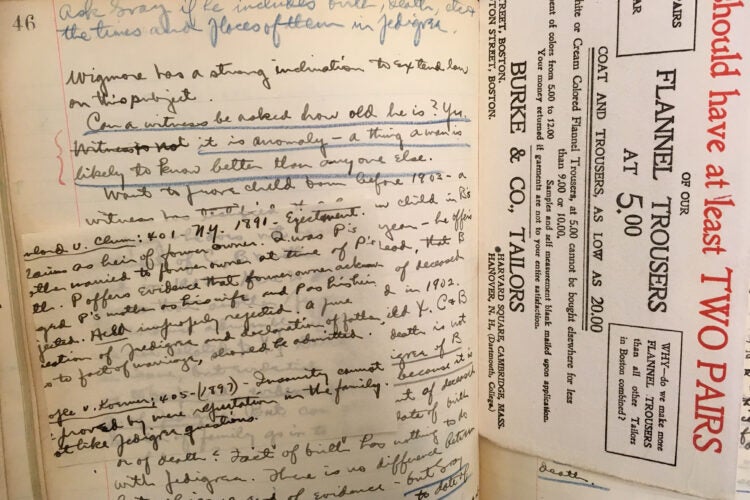 46
Ask Gray if he includes birth, death,
the times and places of them in pedigree.
Wigmore has a strong inclination to extend law
on this subject.
Can a witness be asked how old he is? Yes.
it is anomaly - a thing a man is
likely to know better than anyone else.
Want to prove child born before 1902 - a
witness has
child in B's
v. Clum: 401 - N.Y. 1891 - Ejectment.
claims as heir of former owner. Q. was P's
married to former owner at time of P's
P offers evidence that former owner
P's mother as his wife and P as his
Held improperly rejected. A
of pedigree and declaration of father,
to fact of marriage, should be admitted.
405 - (1897) - Insanity cannot
proved by mere reputation in the family.
not like pedigree questions.
year - he offers
dead, that B
of deceased
in 1902.
child X. C & B
death is not
pedigree of B
because it is
of deceased
date of birth
or of death? Fact of birth has nothing to do
with pedigree. There is no difference between
of evidence - but Gray
to date of
death.
should have at least TWO PAIRS
OF OUR
FLANNEL TROUSERS
AT 5.00
WHY—do we make more
FLANNEL TROUSERS
than all other Tailors
in Boston combined?
PAIRS
COAT AND TROUSERS, AS LOW AS 20.00
White or Cream Colored Flannel Trousers, at 5.00 cannot be bought elsewhere for less
than 9.00 or 10.00.
ment of colors from 5.00 to 12.00 Samples and self measurement blank mailed upon application.
Your money returned if garments are not to your entire satisfaction.
BURKE & CO., TAILORS
STREET, BOSTON.
TON STREET, BOSTON.
HARVARD SQUARE, CAMBRIDGE, MASS.
HANOVER, N. H., (Dartmouth College)